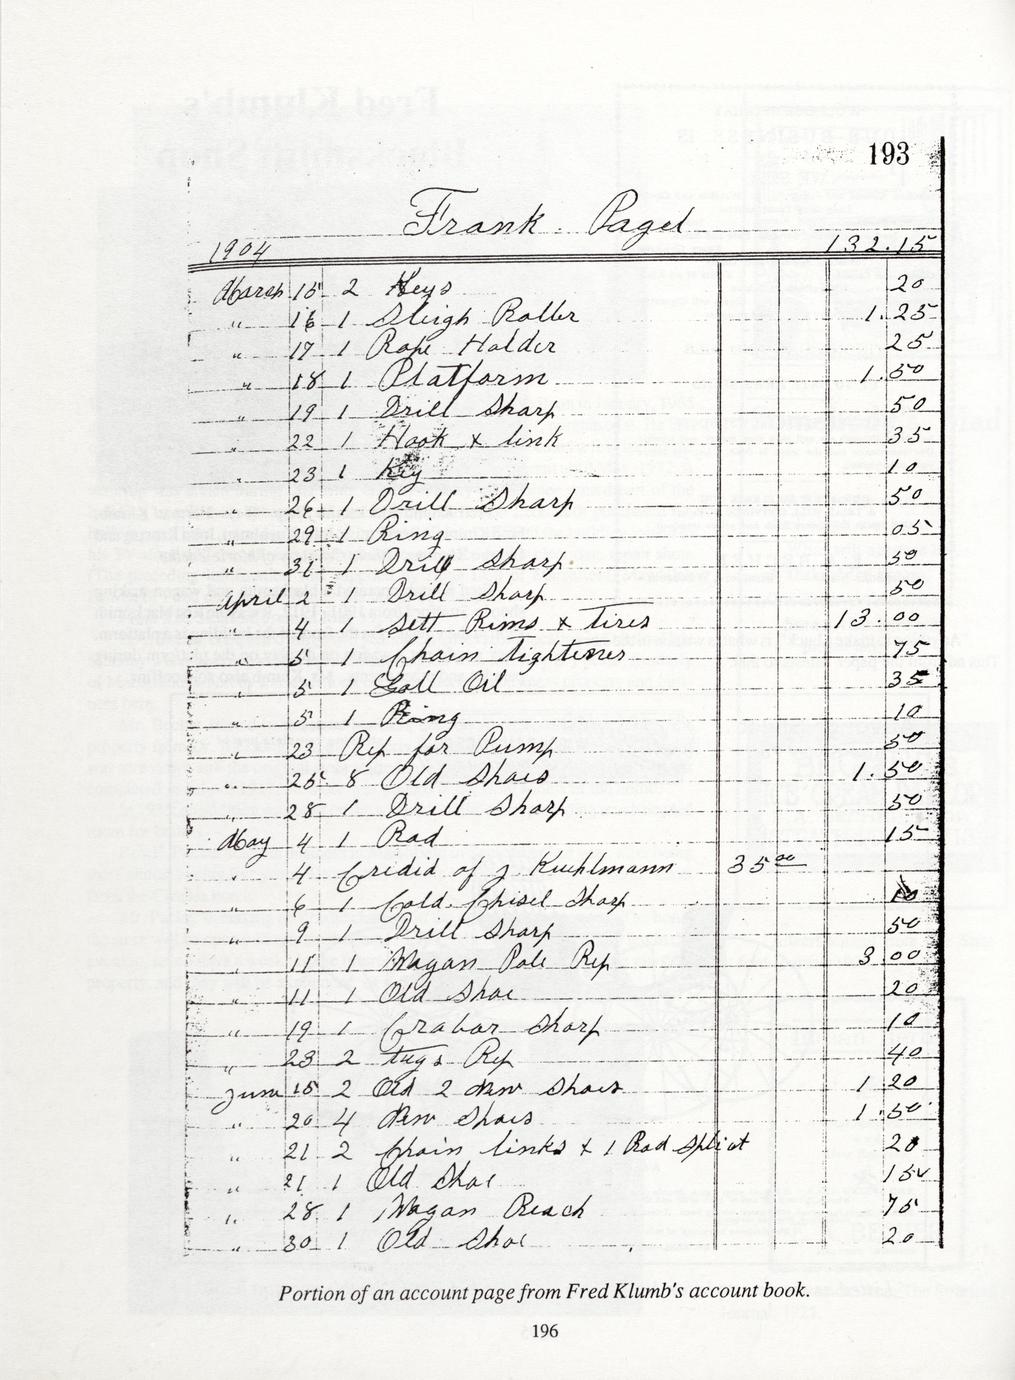 193
Frank Pagel
1904 132.15
March 15 2 Keys 20
" 16 1 Sleigh Roller 1.25
" 17 1 Rope Holder 25
" 18 1 Platform 1.50
" 19 1 Drill Sharp 50
" 22 1 Hook & link 35
" 23 1 Key 10
" 26 1 Drill Sharp 50
" 29 1 Ring 05
" 31 1 Drill Sharp 50
April 2 1 Drill Sharp 50
" 4 1 Sett Rims & Tires 13.00
" 5 1 Chain Tightener 75
" 5 1 Gall Oil 35
" 5 1 Ring 10
" 23 Rep for Pump 50
" 25 8 Old Shoes 1.50
" 28 1 Drill Sharp 50
May 4 1 Rod 15
" 4 Credid of J Kuehlmann 35 00
" 6 1 Cold Chisel Sharp 10
" 9 1 Drill Sharp 50
" 11 1 Wagon Pole Rep 3 00
" 11 1 Old Shoe 20
" 19 1 Crabar Sharp 10
" 23 2 tugs Rep 40
June 15 2 Old 2 New Shoes 1 20
" 20 4 New Shoes 1.50
" 21 2 Chain links & 1 Rod 20
" 21 1 Old Shoe 15
" 28 1 Wagon Reach 75
" 30 1 Old Shoe 20
Portion of an account page from Fred Klumb's account book.
196